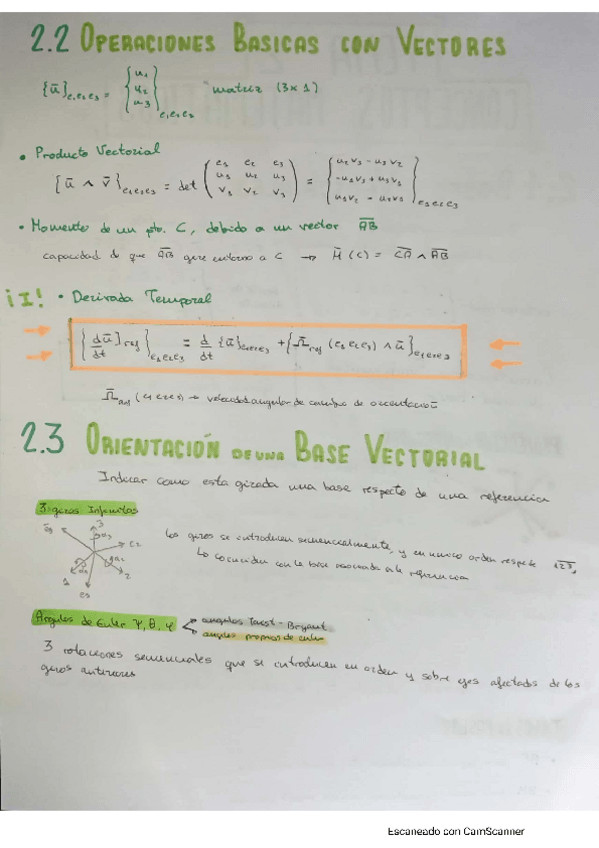 2.2 OPERACIONES BASICAS CON VECTORES
{ū}e1e2e3 = {u1 u2 u3}e1e2e3 matriz (3x1)
• Producto Vectorial
{ū ∧ v̄}e1e2e3 = det (e1 e2 e3 / u1 u2 u3 / v1 v2 v3) = {u2v3 - u3v2 / -u1v3 + u3v1 / u1v2 - u2v1}e1e2e3
• Momento de un pto. C, debido a un vector AB
capacidad de que AB gire entorno a C → M̄(C) = CA ∧ AB
¡I! • Derivada Temporal
{dū/dt]ref}e1e2e3 = d/dt {ū}e1e2e3 + {Ω̄ref (e1e2e3) ∧ ū}e1e2e3
Ω̄ref (e1e2e3) → velocidad angular de cambio de orientación
2.3 ORIENTACIÓN DE UNA BASE VECTORIAL
Indicar como esta girada una base respecto de una referencia
3 giros Infinitos
Los giros se introducen secuencialmente, y en un orden respecto 123,
Lo coinciden con la base asociada a la referencia
Angulos de Euler ψ, θ, φ < angulos Tait-Bryant
angulos propios de euler
3 rotaciones secuenciales que se introducen en orden y sobre ejes afectados de los
giros anteriores
Escaneado con CamScanner